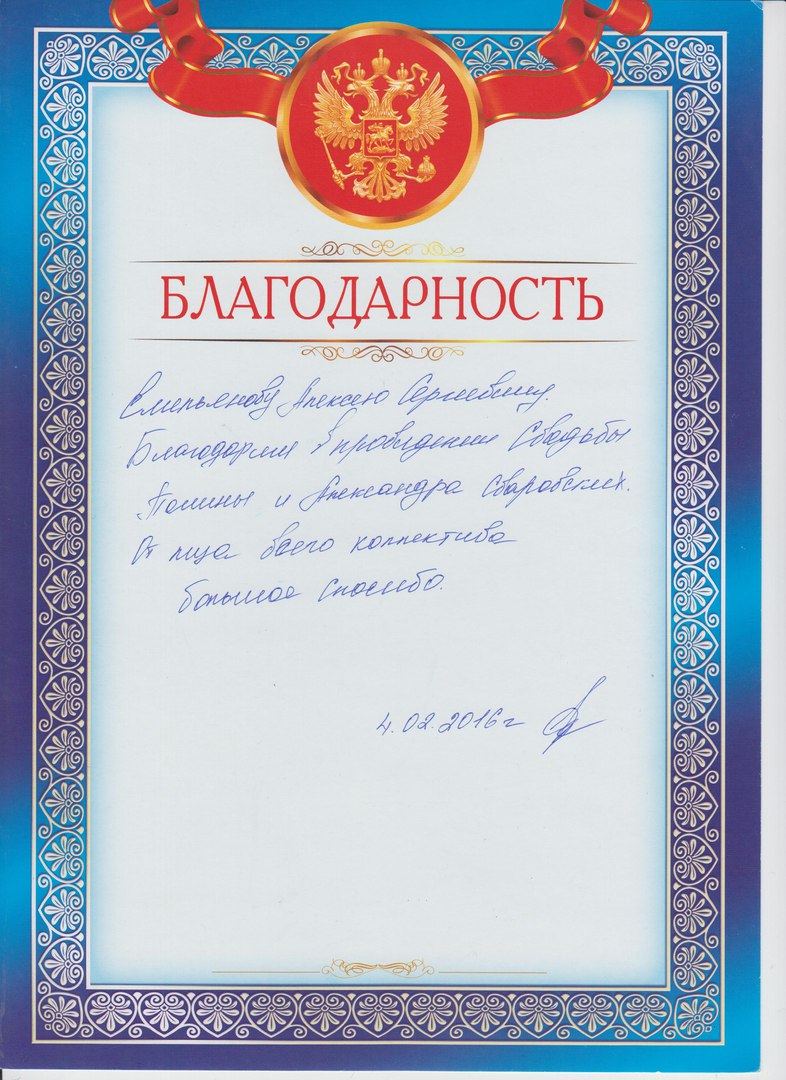 БЛАГОДАРНОСТЬ
Емельянову Алексею Сергеевичу.
Благодарим в проведении Свадьбы
Полины и Александра Сваровских.
От лица всего коллектива
большое спасибо.
4.02.2016 г